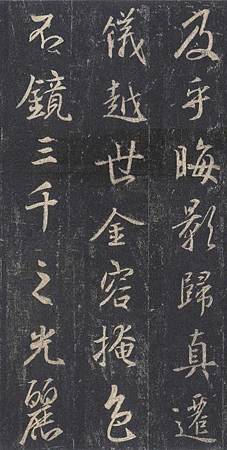 及乎晦影歸真遷
儀越世金容掩色
不鏡三千之光麗